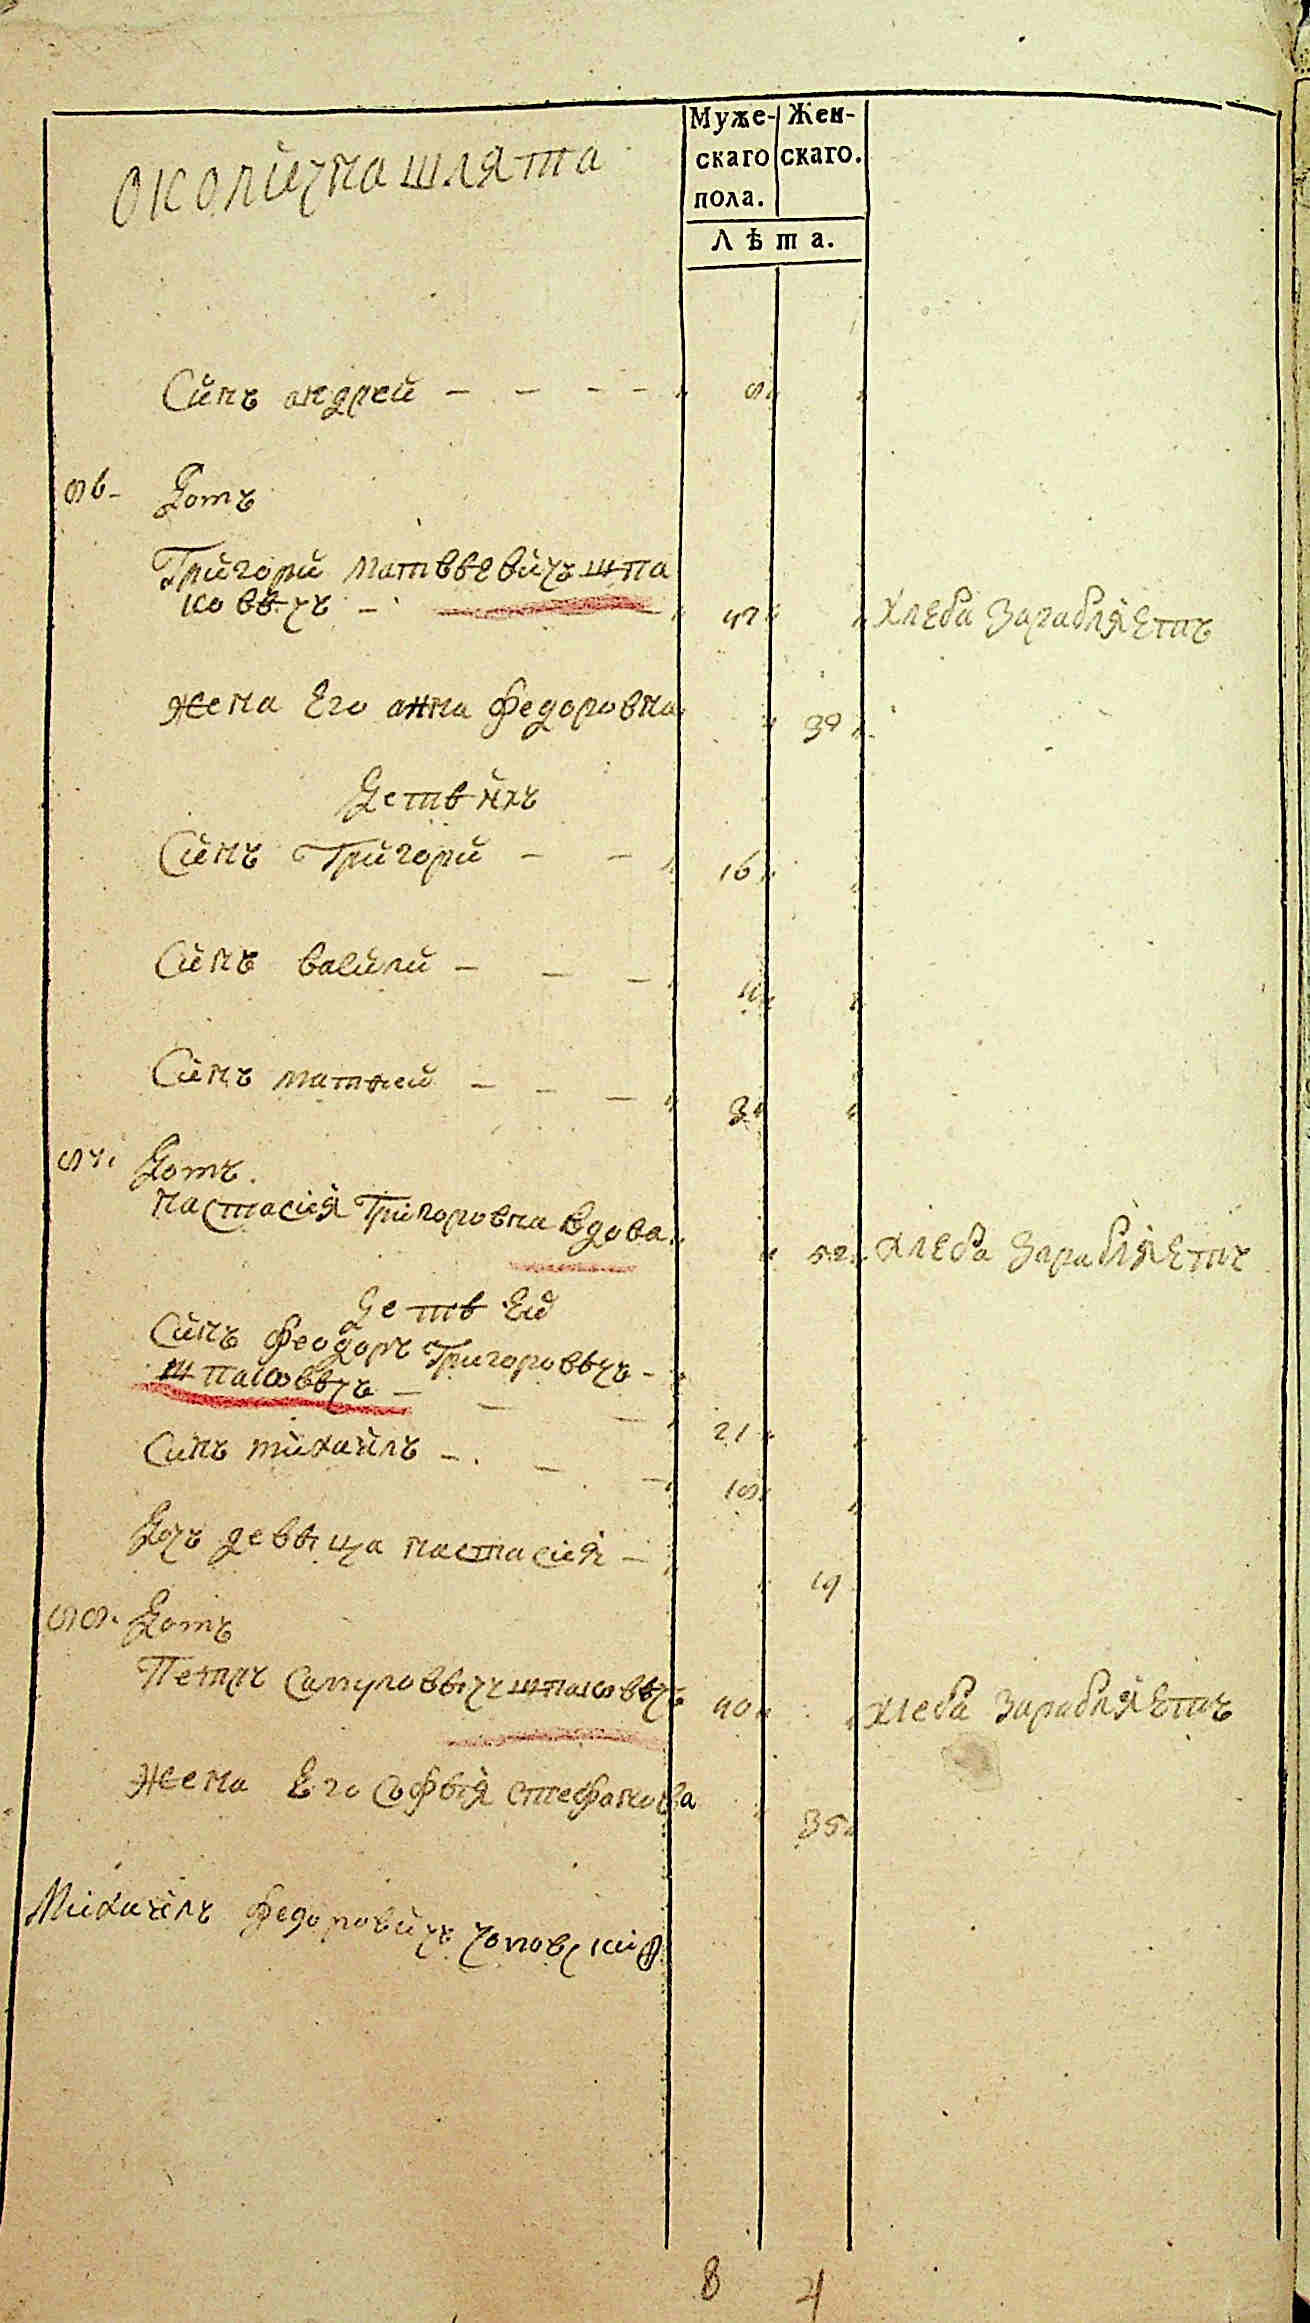 околична шляхта
Муже-
скаго
пола.
Жен-
скаго.
Лѣта.
Синъ андрей
8
86
Домъ
Григори матвѣевичъ шпа
ковѣчъ
47
хлеба заработяетъ
жена Его анна федоровна
39
детѣ ихъ
Синъ Григори
16
Синъ васили
Синъ матфей
3
87
Домъ
настасия Григоровна вдова
52
хлеба зарабляетъ
детѣ Ей
Синъ феодоръ Григоровѣчъ
шпаковѣчъ
21
Синъ михаилъ
18
Дочъ девѣца настасия
19
88
Домъ
Петръ Самуловѣчъ шпаковѣчъ
40
хлеба зарабляетъ
жена Его Софѣя стефанова
35
Михаилъ федоровичъ
8 4